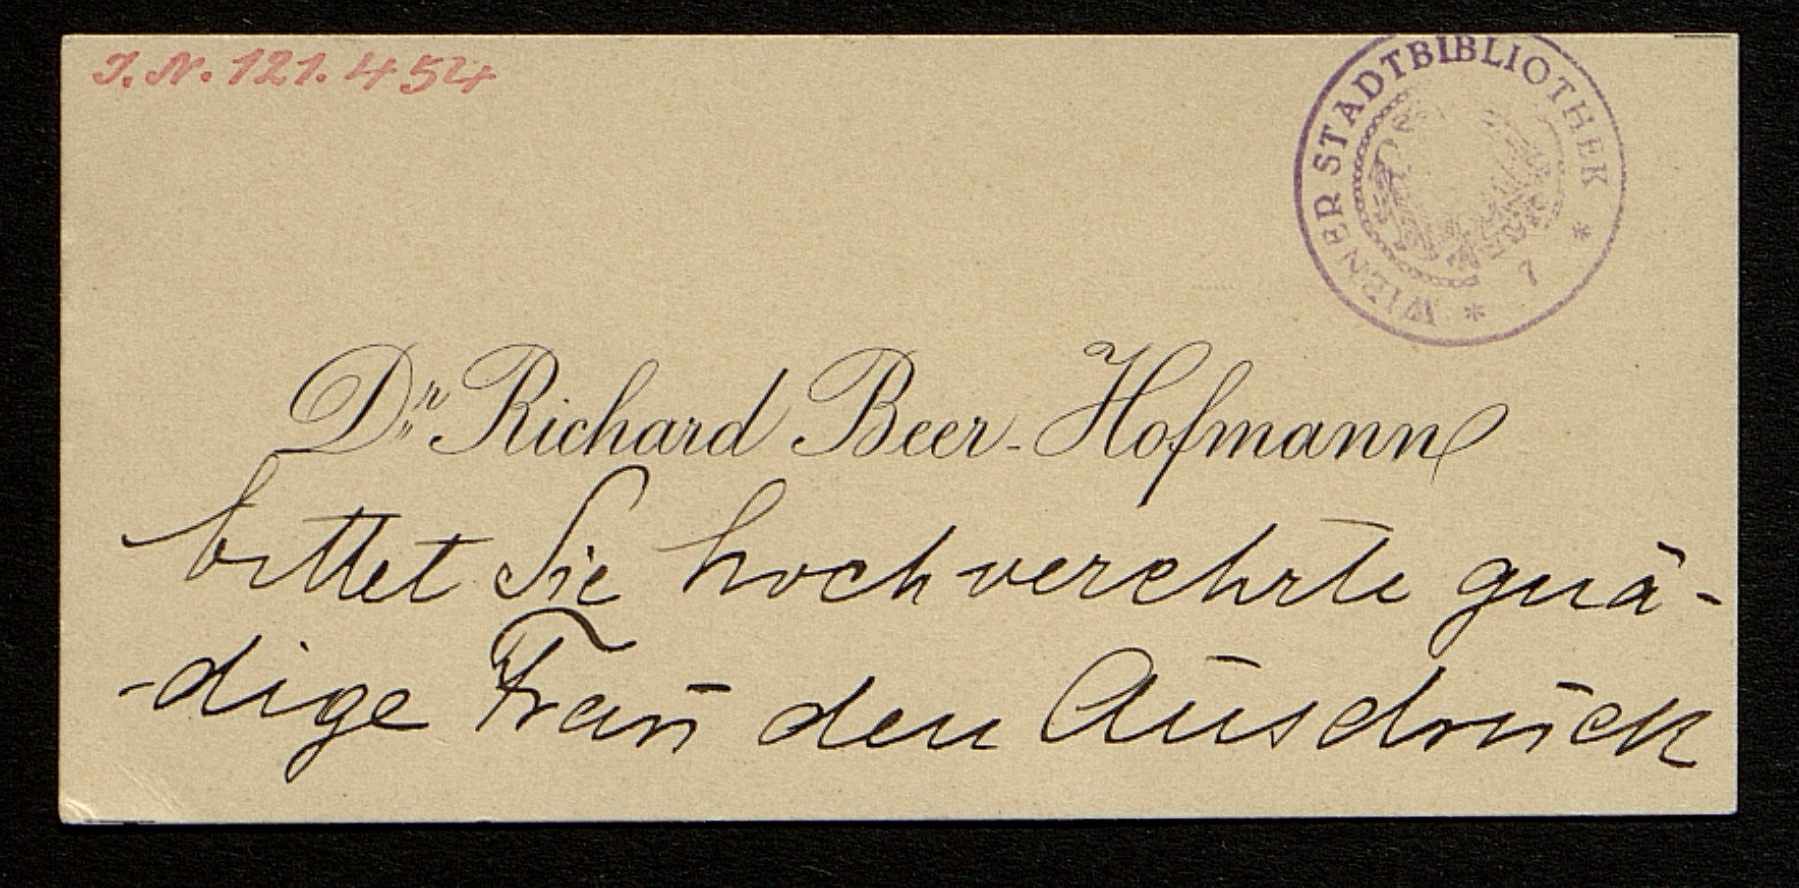 I. N. 121.454
WIENER STADTBIBLIOTHEK * 7 *
Dr. Richard Beer-Hofmann
bittet Sie hochverehrte gnä-
-dige Frau den Ausdruck